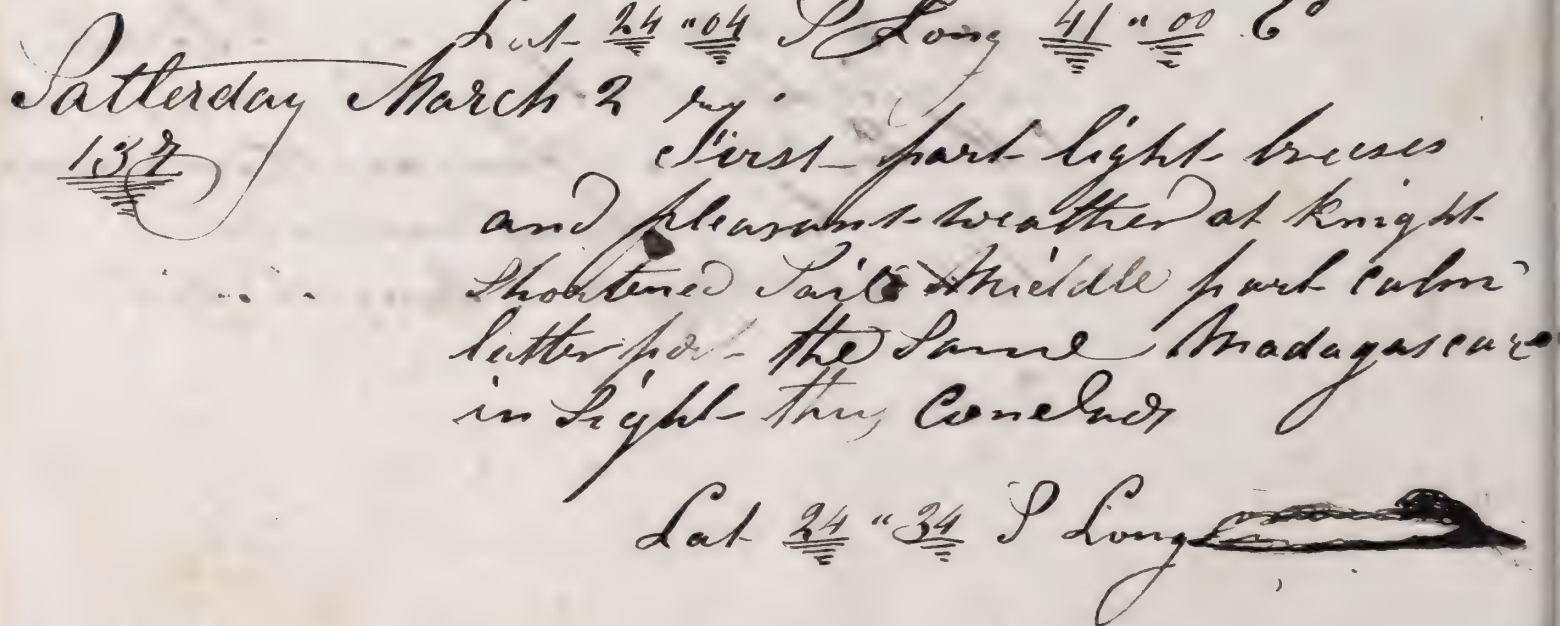 Lat 24 " 04 S Long 41 " 00 E
Satterday March 2
137
First part light breeses
and pleasant weather at knight
Shortened Sail Middle part calm
latter part the Same Madagascar
in Sight thus Concluds
Lat 24 " 34 S Long